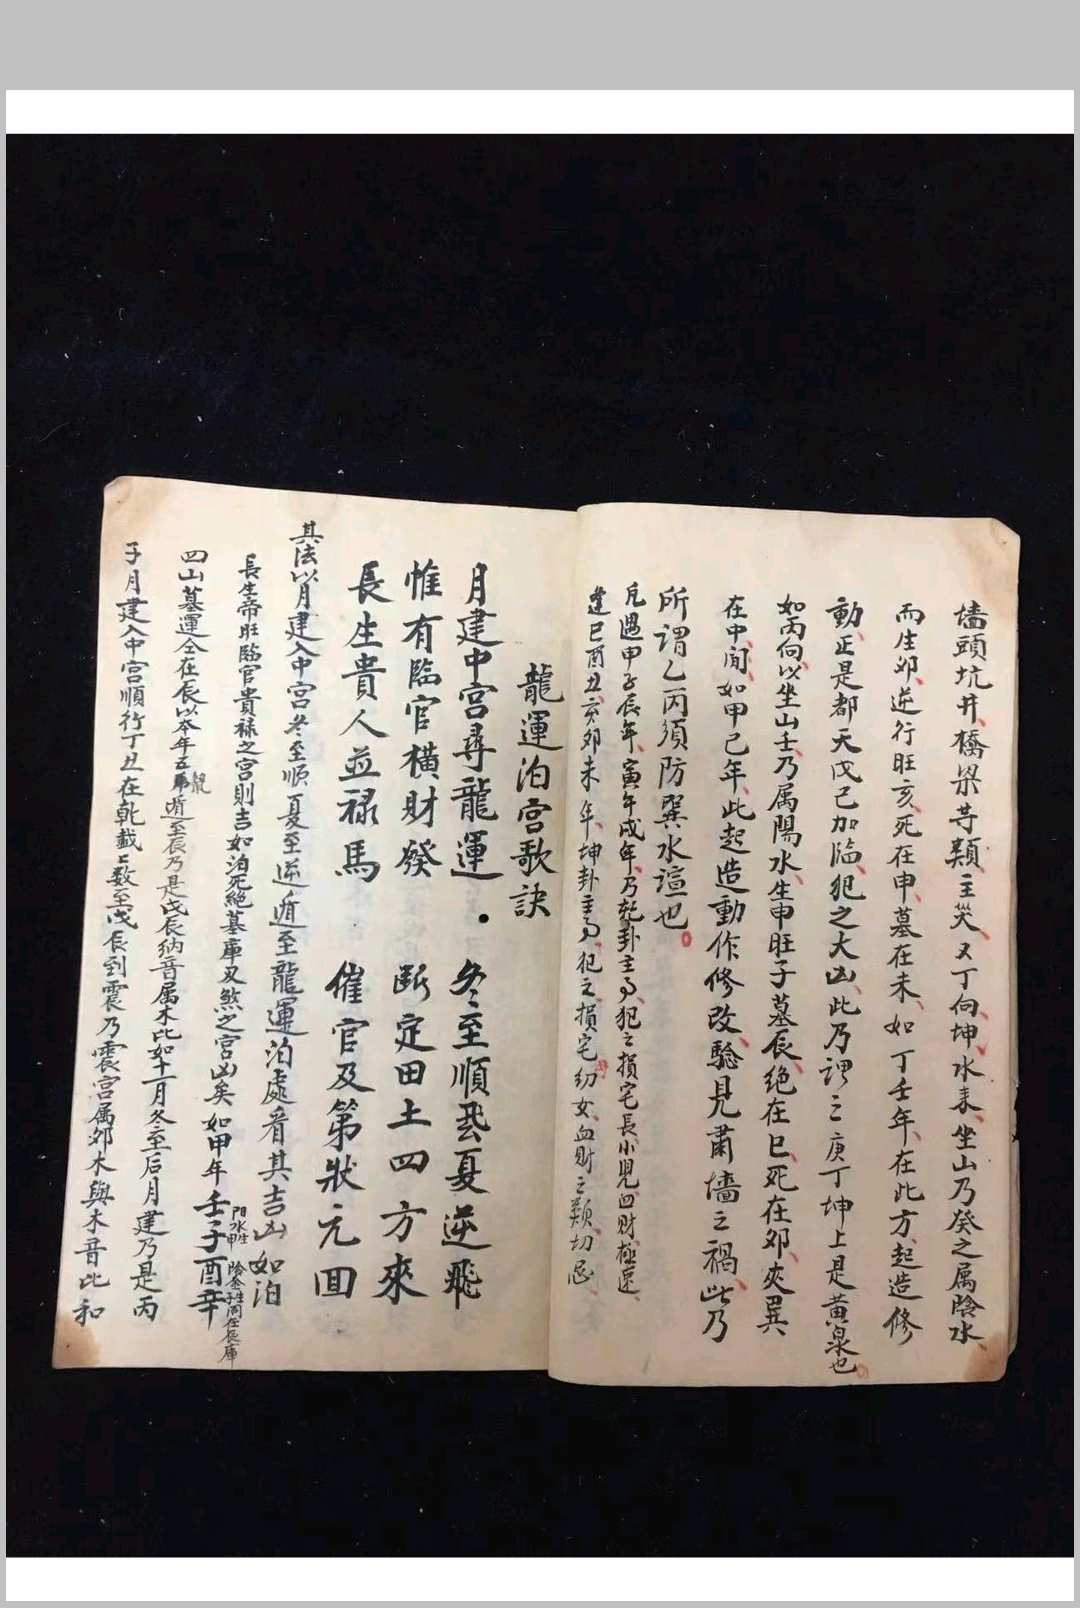 墻頭坑井橋梁等類主哭又丁向坤水耒坐山乃癸之属陰水
而生卯逆行旺亥死在申墓在未如丁壬年在此方起造修
動正是都天戊己加臨犯之大凶此乃謂之庚丁坤上是黃泉也
如丙向以坐山壬乃属陽水生申旺子墓辰绝在巳死在卯夾巽
在中间如甲己年此起造動作修改驗見蕭墻之禍此乃
所謂乙丙須防巽水諠也
凡遇甲子辰年寅午戌年乃乾卦主事犯之損宅長小児凶財極速
逢巳酉丑亥卯未年坤卦主事犯之損宅幼女血財之類切忌
龍運泊宮歌訣
月建中宮尋龍運 冬至順飛夏逆飛
惟有臨官橫財發 断定田土四方來
長生貴人並禄馬 催官及第狀元囬
其法以月建入中宮冬至順夏至逆遁至龍運泊處看其吉凶如泊
長生帝旺臨官貴禄之宮則吉如泊死絕墓庫及煞之宮凶矣如甲年壬子酉辛
阳水生申 陰金生子同在辰庫
四山墓運仝在辰以本年五龍遁至辰乃是戊辰纳音属木比如十一月冬至后月建乃是丙
子月建入中宮順行丁丑在乾載上数至戊辰到震乃震宮属卯木與木音比和